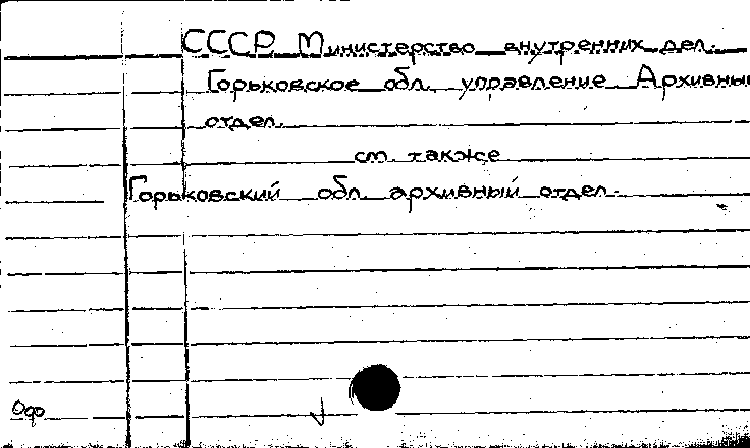 СССР. Министерство внутренних дел.
Горьковское обл. управление Архивный
отдел.
см. также
Горьковский обл. архивный отдел.